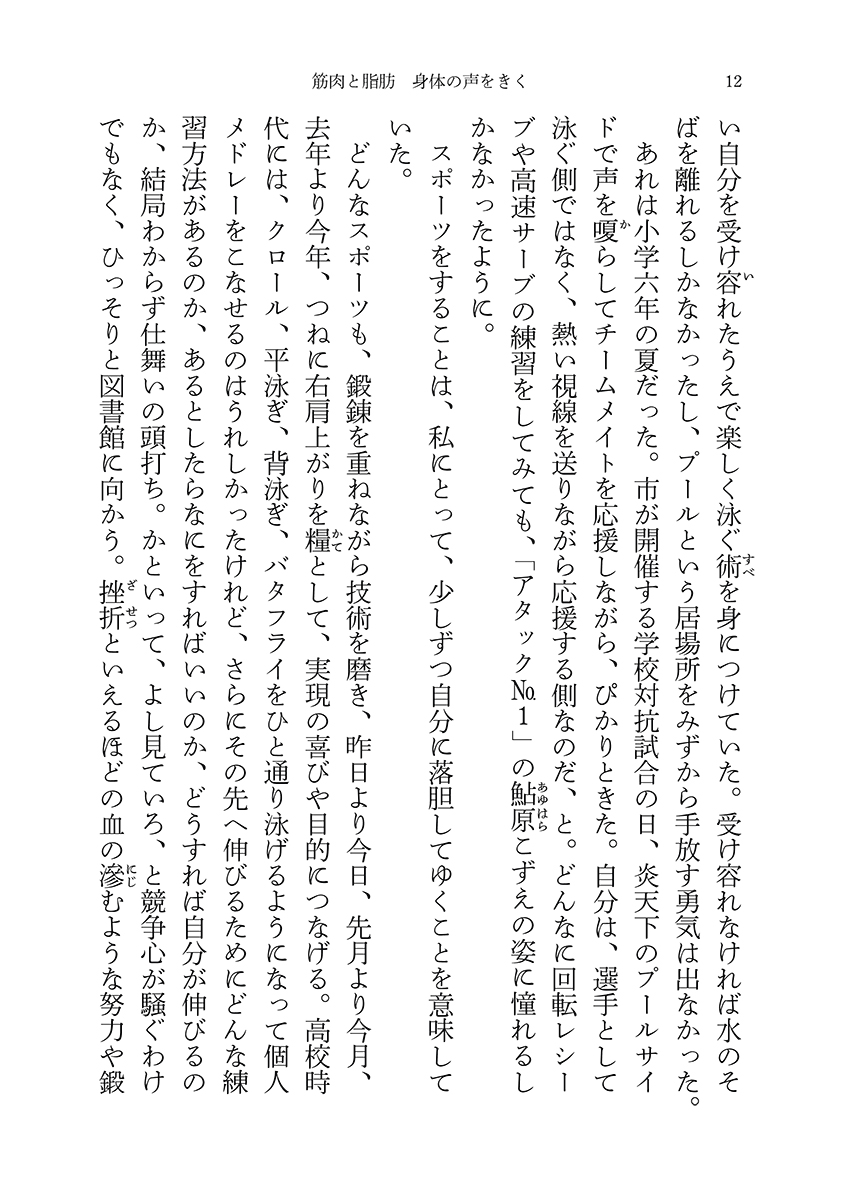 筋肉と脂肪　身体の声をきく
12
い自分を受け容れたうえで楽しく泳ぐ術を身につけていた。受け容れなければ水のそ
ばを離れるしかなかったし、プールという居場所をみずから手放す勇気は出なかった。
　あれは小学六年の夏だった。市が開催する学校対抗試合の日、炎天下のプールサイ
ドで声を嗄らしてチームメイトを応援しながら、ぴかりときた。自分は、選手として
泳ぐ側ではなく、熱い視線を送りながら応援する側なのだ、と。どんなに回転レシー
ブや高速サーブの練習をしてみても、「アタック№1」の鮎原こずえの姿に憧れるし
かなかったように。
　スポーツをすることは、私にとって、少しずつ自分に落胆してゆくことを意味して
いた。
　どんなスポーツも、鍛錬を重ねながら技術を磨き、昨日より今日、先月より今月、
去年より今年、つねに右肩上がりを糧として、実現の喜びや目的につなげる。高校時
代には、クロール、平泳ぎ、背泳ぎ、バタフライをひと通り泳げるようになって個人
メドレーをこなせるのはうれしかったけれど、さらにその先へ伸びるためにどんな練
習方法があるのか、あるとしたらなにをすればいいのか、どうすれば自分が伸びるの
か、結局わからず仕舞いの頭打ち。かといって、よし見ていろ、と競争心が騒ぐわけ
でもなく、ひっそりと図書館に向かう。挫折といえるほどの血の滲むような努力や鍛